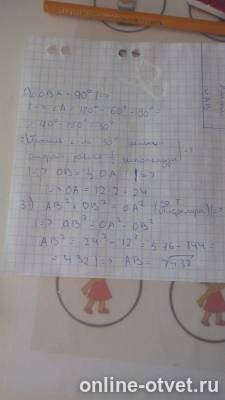 1) ∠OBA = 90° | =>
| => ∠A = 180° - 60° - 90° =
= 180° - 150° = 30°
2) 30°
| => OB = ½ OA | =>
| => OA = 12·2 = 24
3) AB² + OB² = OA² (по т. Пифагора) | =>
| => AB² = OA² - OB²
AB² = 24² - 12² = 576 - 144 =
= 432 | => AB = √432
online-otvet.ru